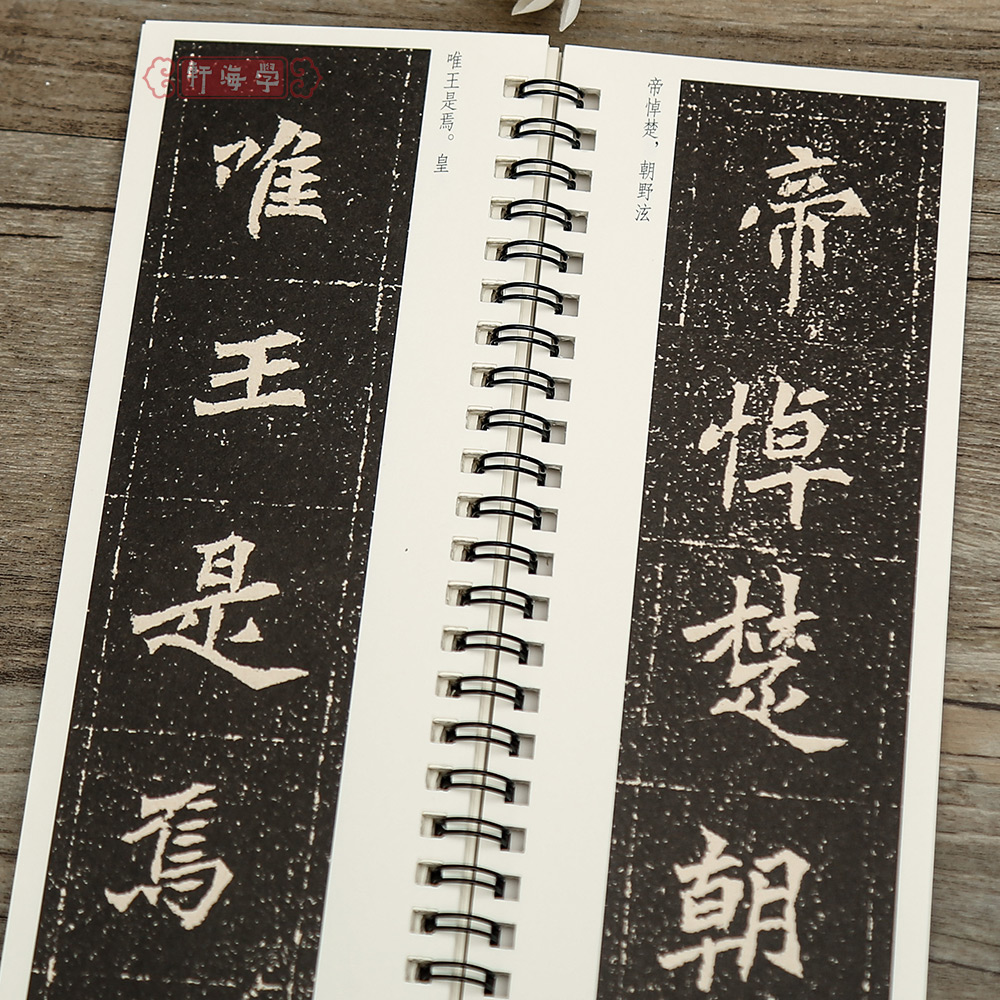 學海軒
帝悼楚，朝野泫
帝悼楚朝
唯王是焉。皇
唯王是焉